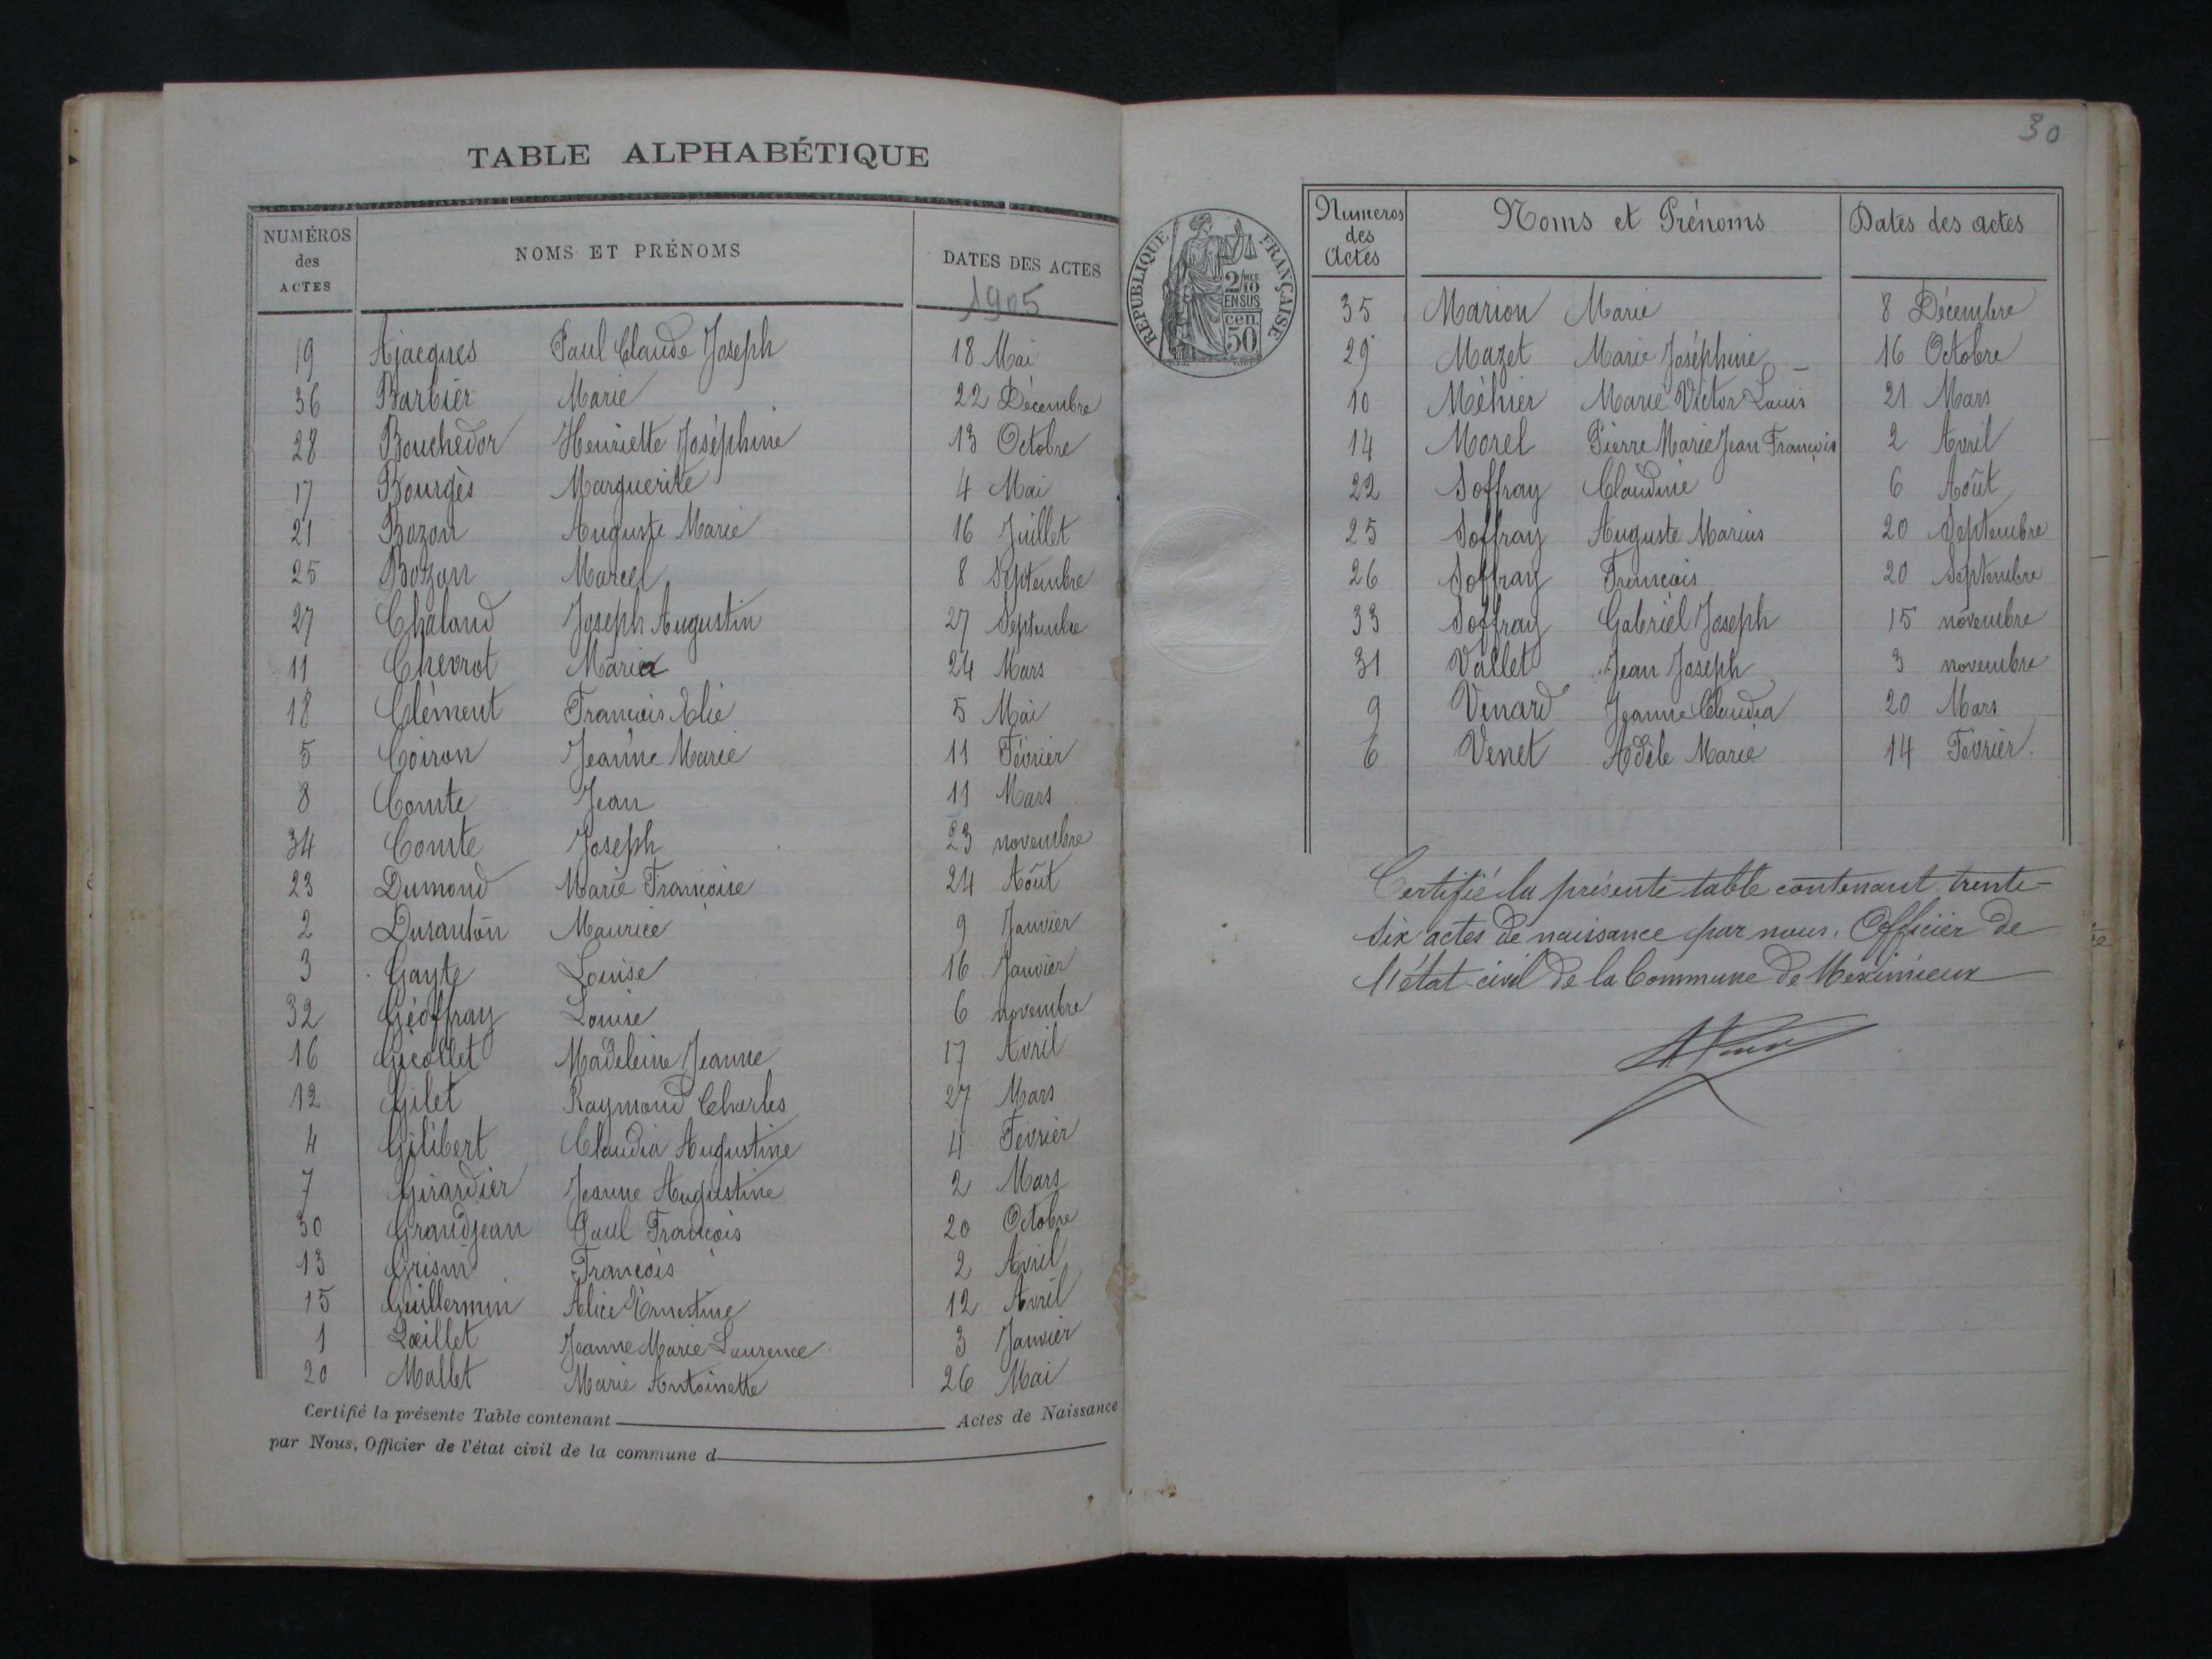 TABLE ALPHABÉTIQUE
NUMÉROS des ACTES NOMS ET PRÉNOMS DATES DES ACTES
1905
19 Ajacques Paul Claude Joseph 18 Mai
36 Barbier Marie 22 Décembre
28 Bouchedor Henriette Joséphine 13 Octobre
17 Bourgès Marguerite 4 Mai
21 Bozon Auguste Marie 16 Juillet
25 Bozon Marcel 8 Septembre
27 Chaland Joseph Augustin 27 Septembre
11 Chevrot Maria 24 Mars
18 Clément François Elie 5 Mai
5 Coiron Jeanne Marie 11 Février
8 Comte Jean 11 Mars
34 Comte Joseph 23 novembre
23 Dumond Marie Françoise 24 Août
2 Dusauton Maurice 9 Janvier
3 Gayte Louise 16 Janvier
32 Géoffray Louise 6 novembre
16 Gicollet Madeleine Jeanne 17 Avril
12 Gilet Raymond Charles 27 Mars
4 Gilibert Claudia Augustine 4 Février
7 Girardier Jeanne Augustine 2 Mars
30 Grandjean Paul François 20 Octobre
13 François 2 Avril
15 Guillermin Alice Ernestine 12 Avril
1 Lœillet Jeanne Marie Laurence 3 Janvier
20 Mallet Marie Antoinette 26 Mai
Certifié la présente Table contenant Actes de Naissance
par Nous, Officier de l'état civil de la commune d
30
RÉPUBLIQUE FRANÇAISE
2/10 MES
EN SUS
50 cen.
Numeros des Actes Noms et Prénoms Dates des actes
35 Marion Marie 8 Décembre
29 Mazet Marie Joséphine 16 Octobre
10 Méhier Marie Victor Louis 21 Mars
14 Morel Pierre Marie Jean François 2 Avril
22 Soffray Claudine 6 Août
25 Soffray Auguste Marius 20 Septembre
26 Soffray François 20 Septembre
33 Soffray Gabriel Joseph 15 novembre
31 Vallet Jean Joseph 3 novembre
9 Venard Jeanne Claudia 20 Mars
6 Venet Adèle Marie 14 Février.
Certifié la présente table contenant trente-
six actes de naissance par nous, Officier de
l'état-civil de la Commune de Meximieux